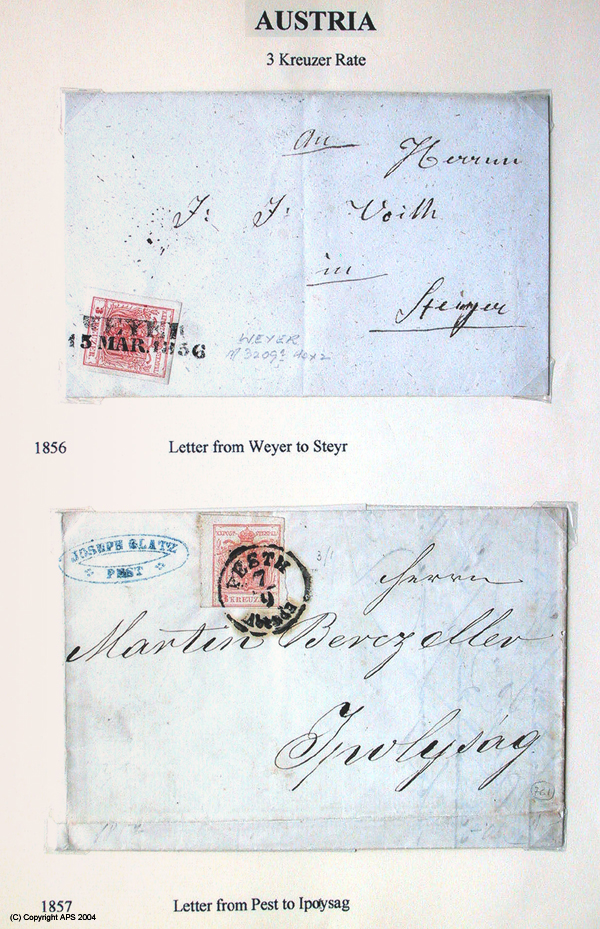 AUSTRIA
3 Kreuzer Rate
An
Herrnn
J: J: Voith
in
Steyer
WEYER
15 MAR. 1856
WEYER
1856
Letter from Weyer to Steyr
JOSEPH GLATZ
PEST
KREUZER
PESTH
7/9
Herrn
Martin Berczeller
Ipolyság
1857
Letter from Pest to Ipolysag
(C) Copyright APS 2004